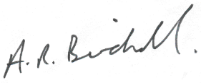 A.R. Birchall.